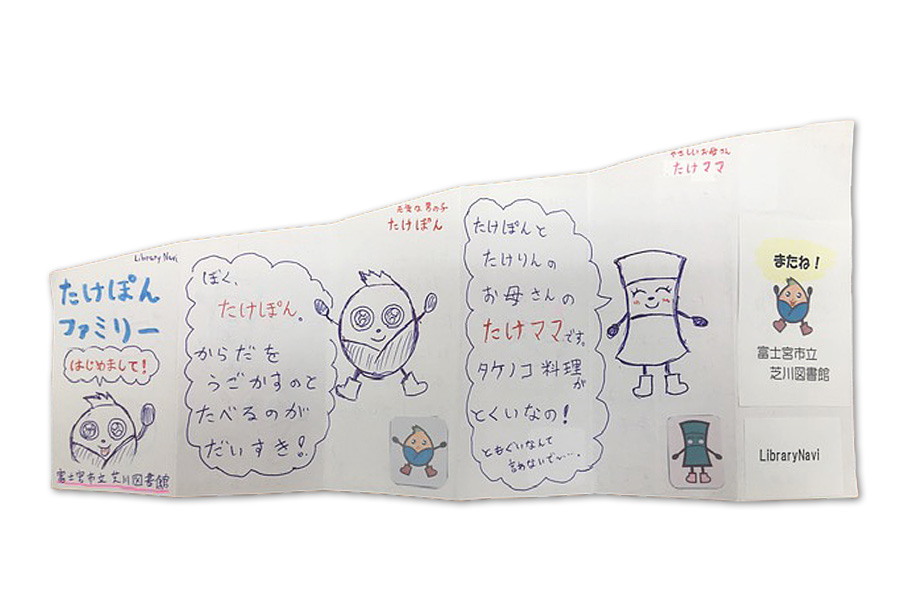 LibraryNavi
たけぽん
ファミリー
はじめまして!
富士宮市立芝川図書館
ぼく、
たけぽん。
からだを
うごかすのと
たべるのが
だいすき!
元気な男の子
たけぽん
たけぽんと
たけりんの
お母さんの
たけママです。
タケノコ料理が
とくいなの!
ともぐいなんて
言わないで〜…。
やさしいお母さん
たけママ
またね!
富士宮市立
芝川図書館
LibraryNavi